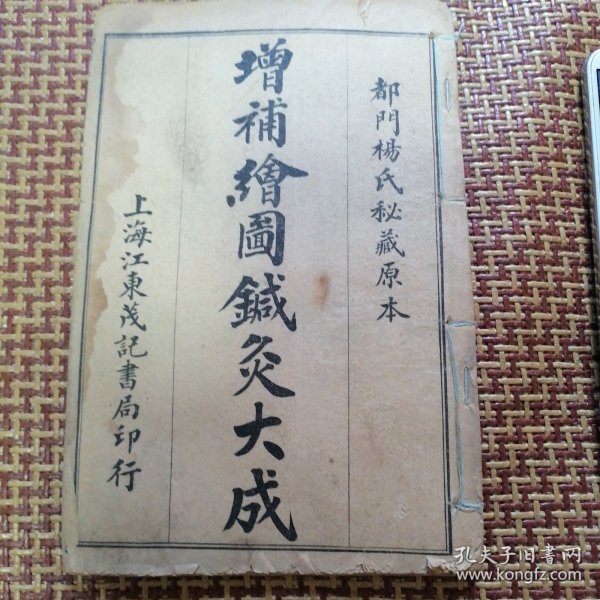 都門楊氏秘藏原本
增補繪圖鍼灸大成
上海江東茂記書局印行
孔夫子旧书网
www.kongfz.com